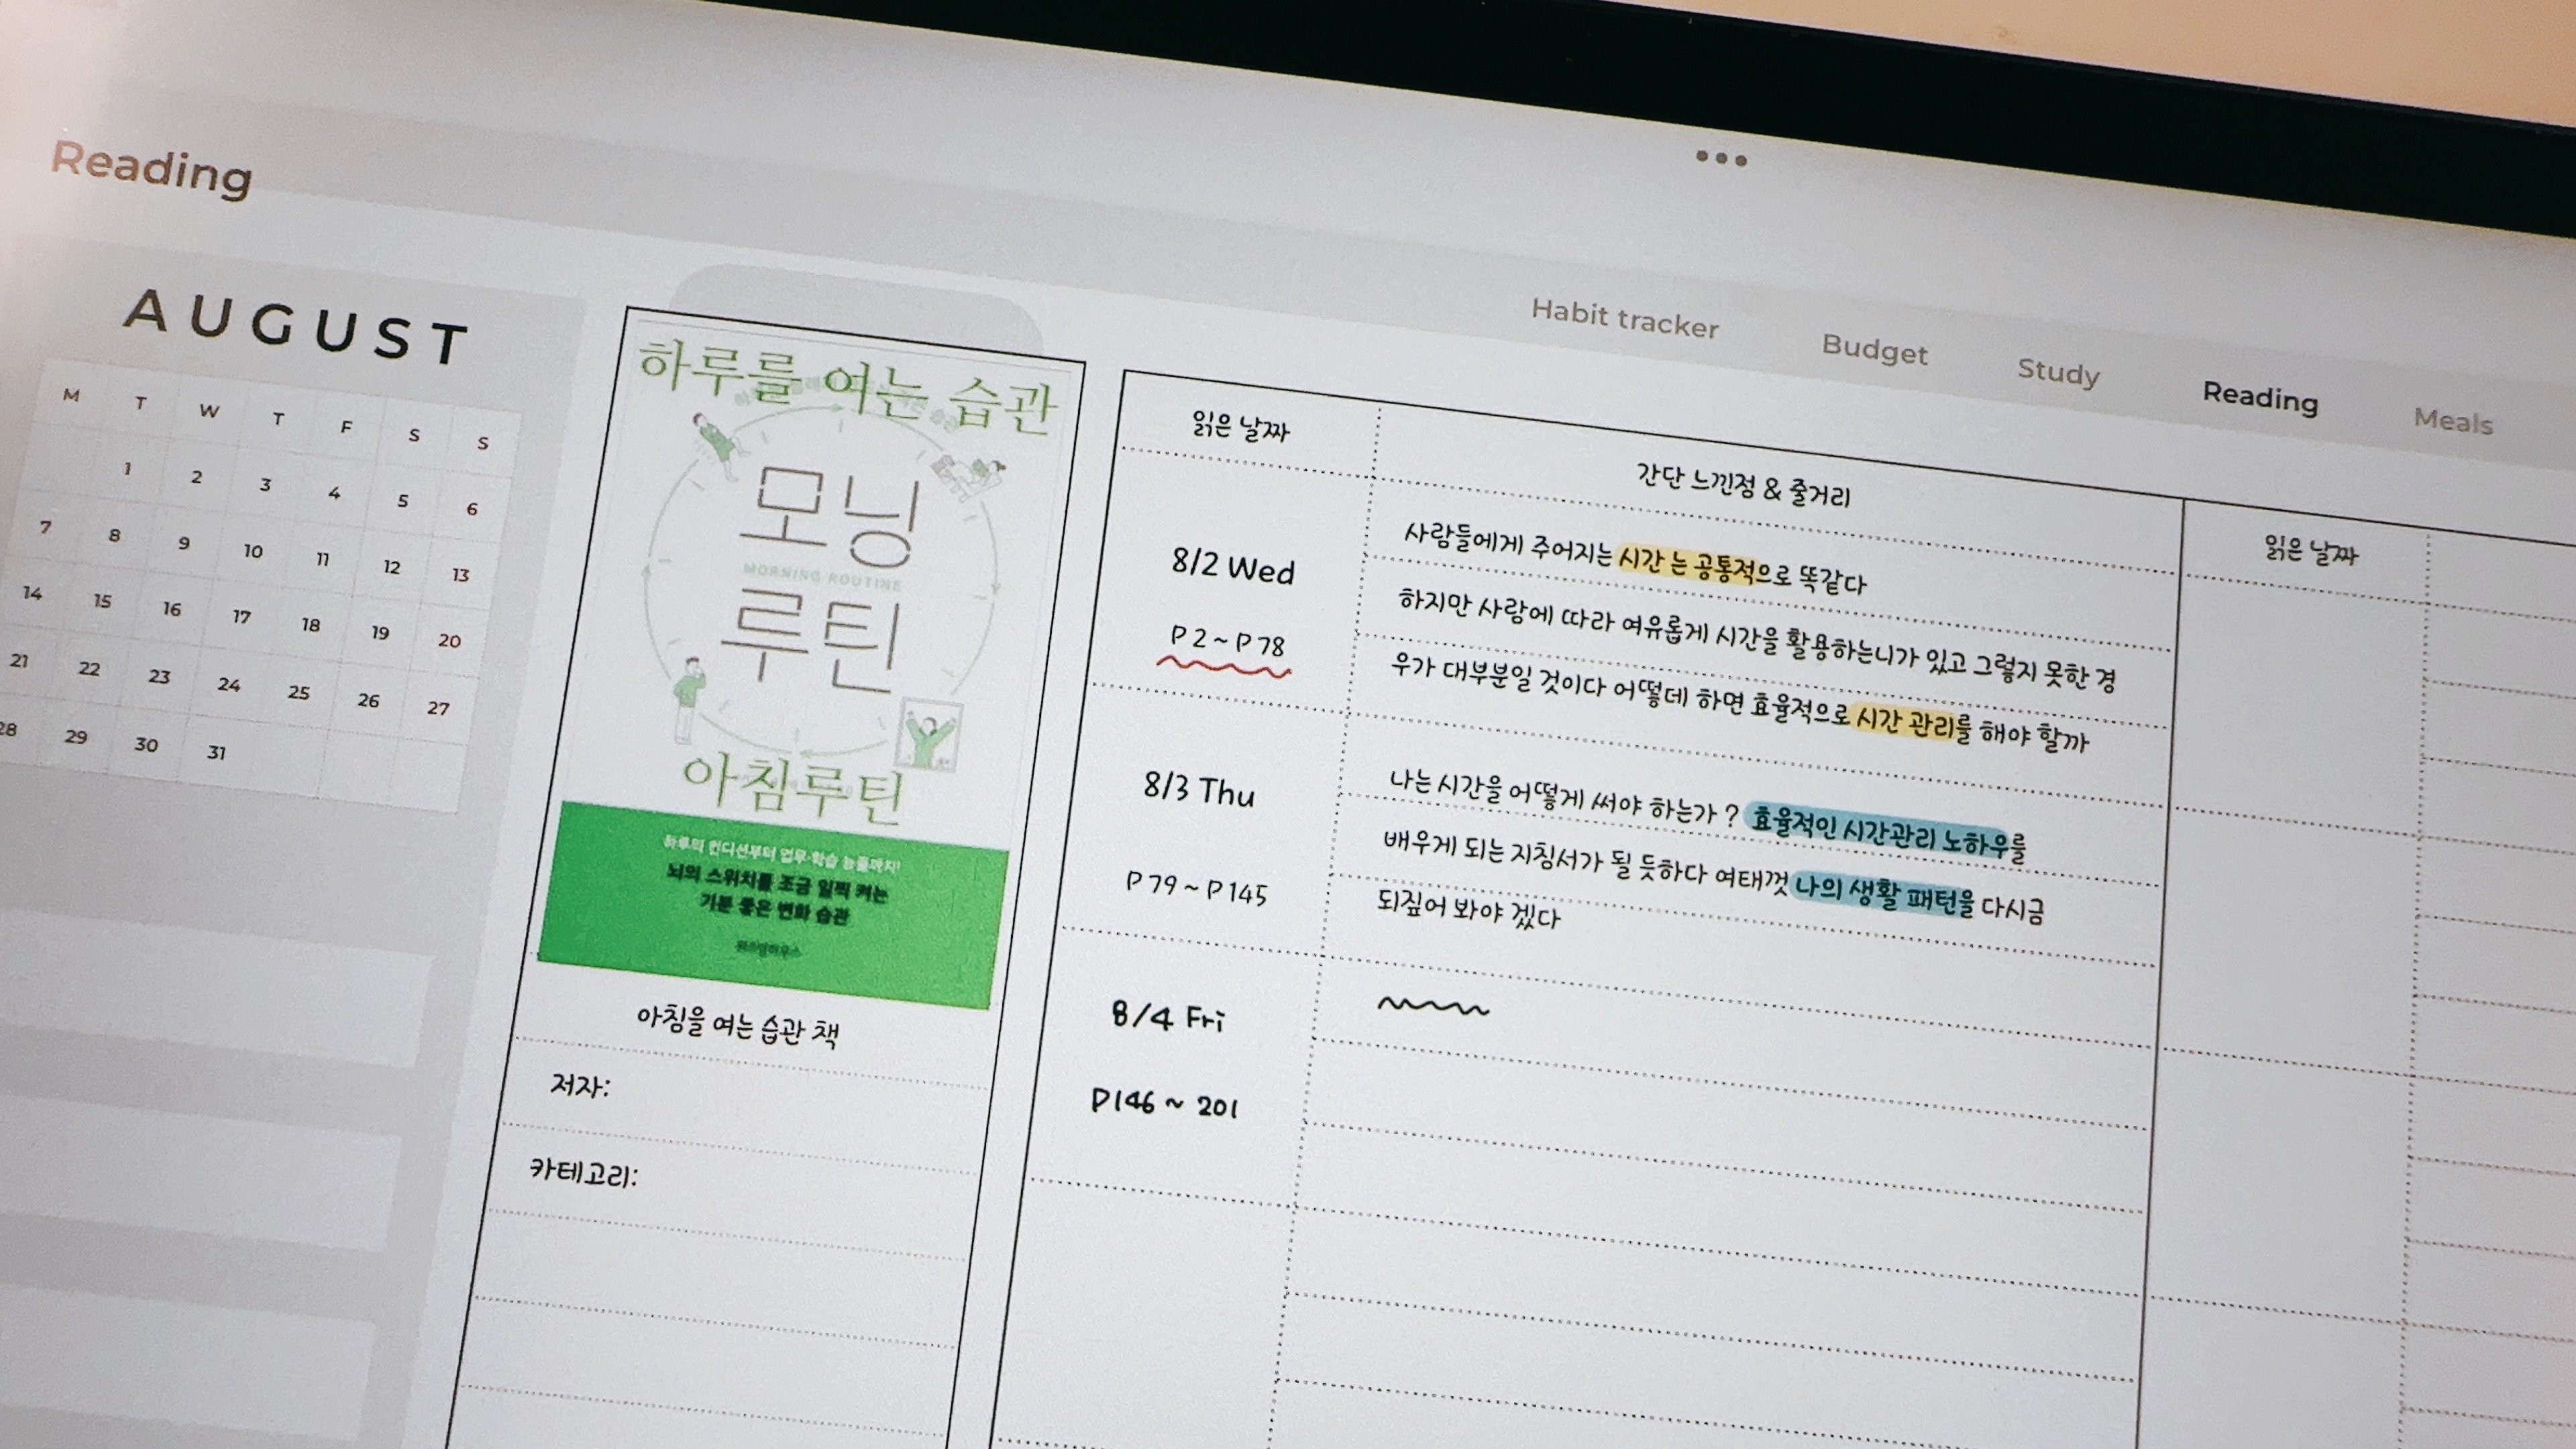 Reading
Habit tracker Budget Study Reading Meals
AUGUST
M T W T F S S
1 2 3 4 5 6
7 8 9 10 11 12 13
14 15 16 17 18 19 20
21 22 23 24 25 26 27
28 29 30 31
하루를 여는 습관
모닝
MORNING ROUTINE
루틴
아침루틴
하루의 컨디션부터 업무·학습 능률까지!
뇌의 스위치를 조금 일찍 켜는
기분 좋은 변화 습관
아침을 여는 습관 책
저자:
카테고리:
읽은 날짜
간단 느낀점 & 줄거리
8/2 Wed
P 2 ~ P 78
사람들에게 주어지는 시간 는 공통적으로 똑같다
하지만 사람에 따라 여유롭게 시간을 활용하는니가 있고 그렇지 못한 경
우가 대부분일 것이다 어떻데 하면 효율적으로 시간 관리를 해야 할까
8/3 Thu
P 79 ~ P 145
나는 시간을 어떻게 써야 하는가 ? 효율적인 시간관리 노하우를
배우게 되는 지침서가 될 듯하다 여태껏 나의 생활 패턴을 다시금
되짚어 봐야 겠다
8/4 Fri
P146 ~ 201
읽은 날짜